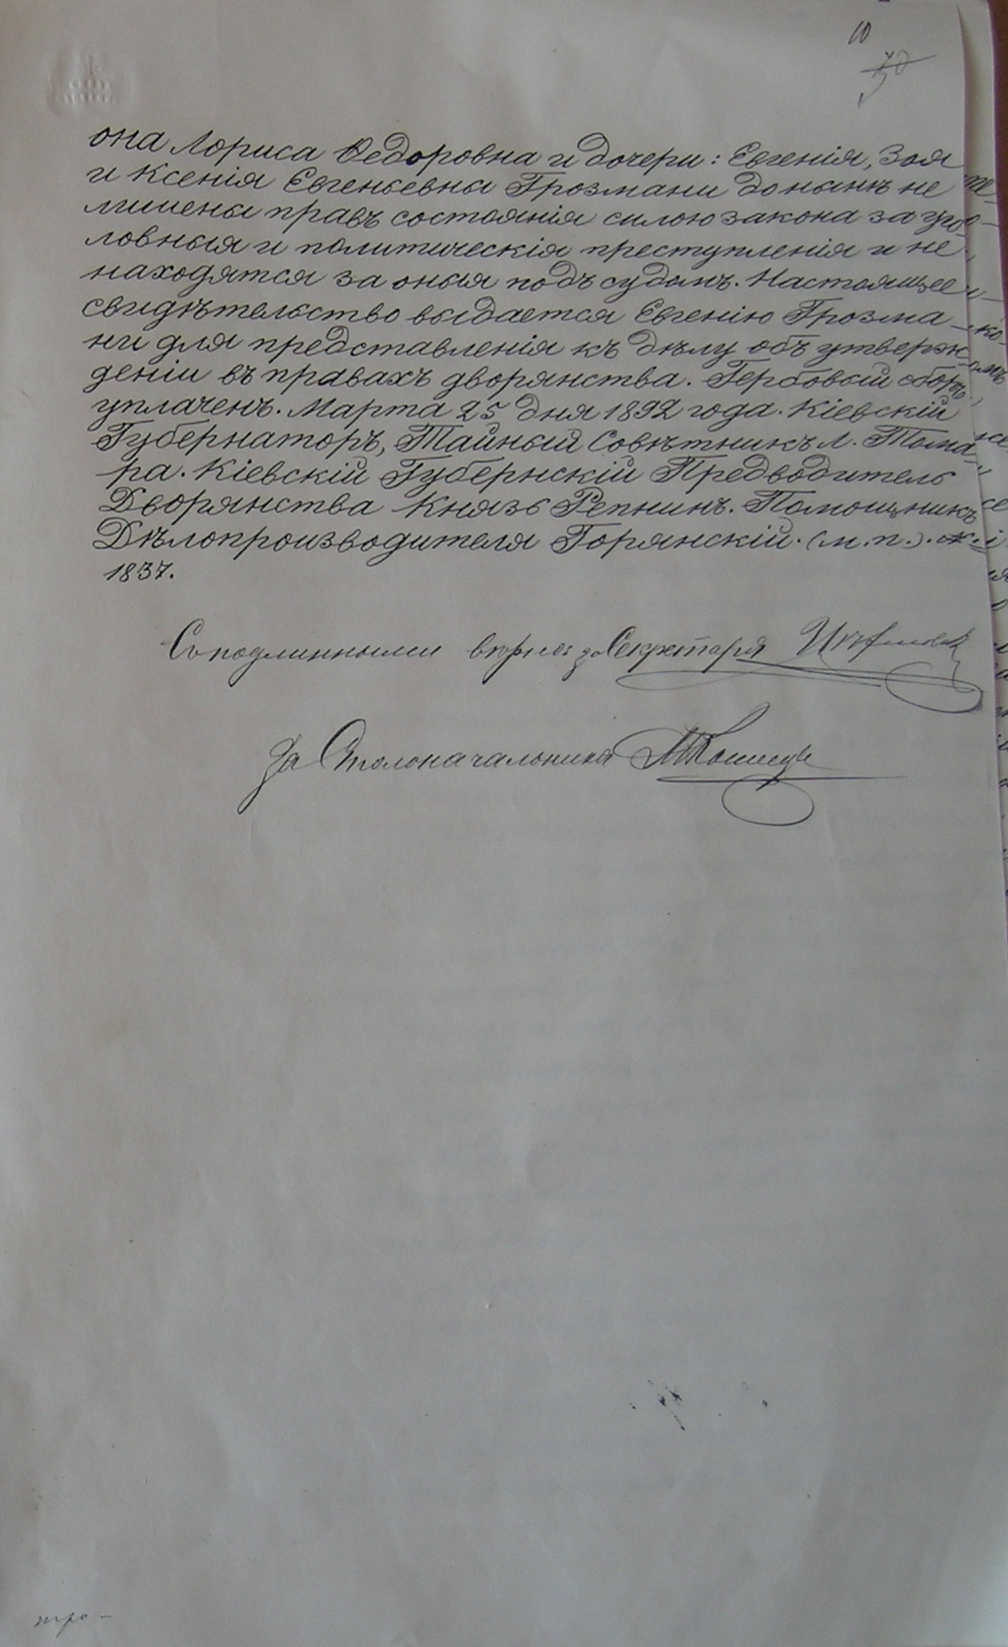 10
она Лориса Ѳедоровна и дочери: Евгенія, Зоя
и Ксенія Евгеньевны Грозмани донынѣ не
лишены правъ состоянія силою закона за уго-
ловныя и политическія преступленія и не
находятся за оныя подъ судомъ. Настоящее
свидѣтельство выдается Евгенію Грозма-
ни для представленія къ дѣлу объ утверж-
деніи въ правахъ дворянства. Гербовый сборъ
уплаченъ. Марта 25 дня 1892 года. Кіевскій
Губернаторъ, Тайный Совѣтникъ Л. Тома-
ра. Кіевскій Губернскій Предводитель
Дворянства Князь Репнинъ. Помощникъ
Дѣлопроизводителя Горянскій. (м. п.).
1837.
Съ подлинными вѣрно: за Секретаря
За Столоначальника